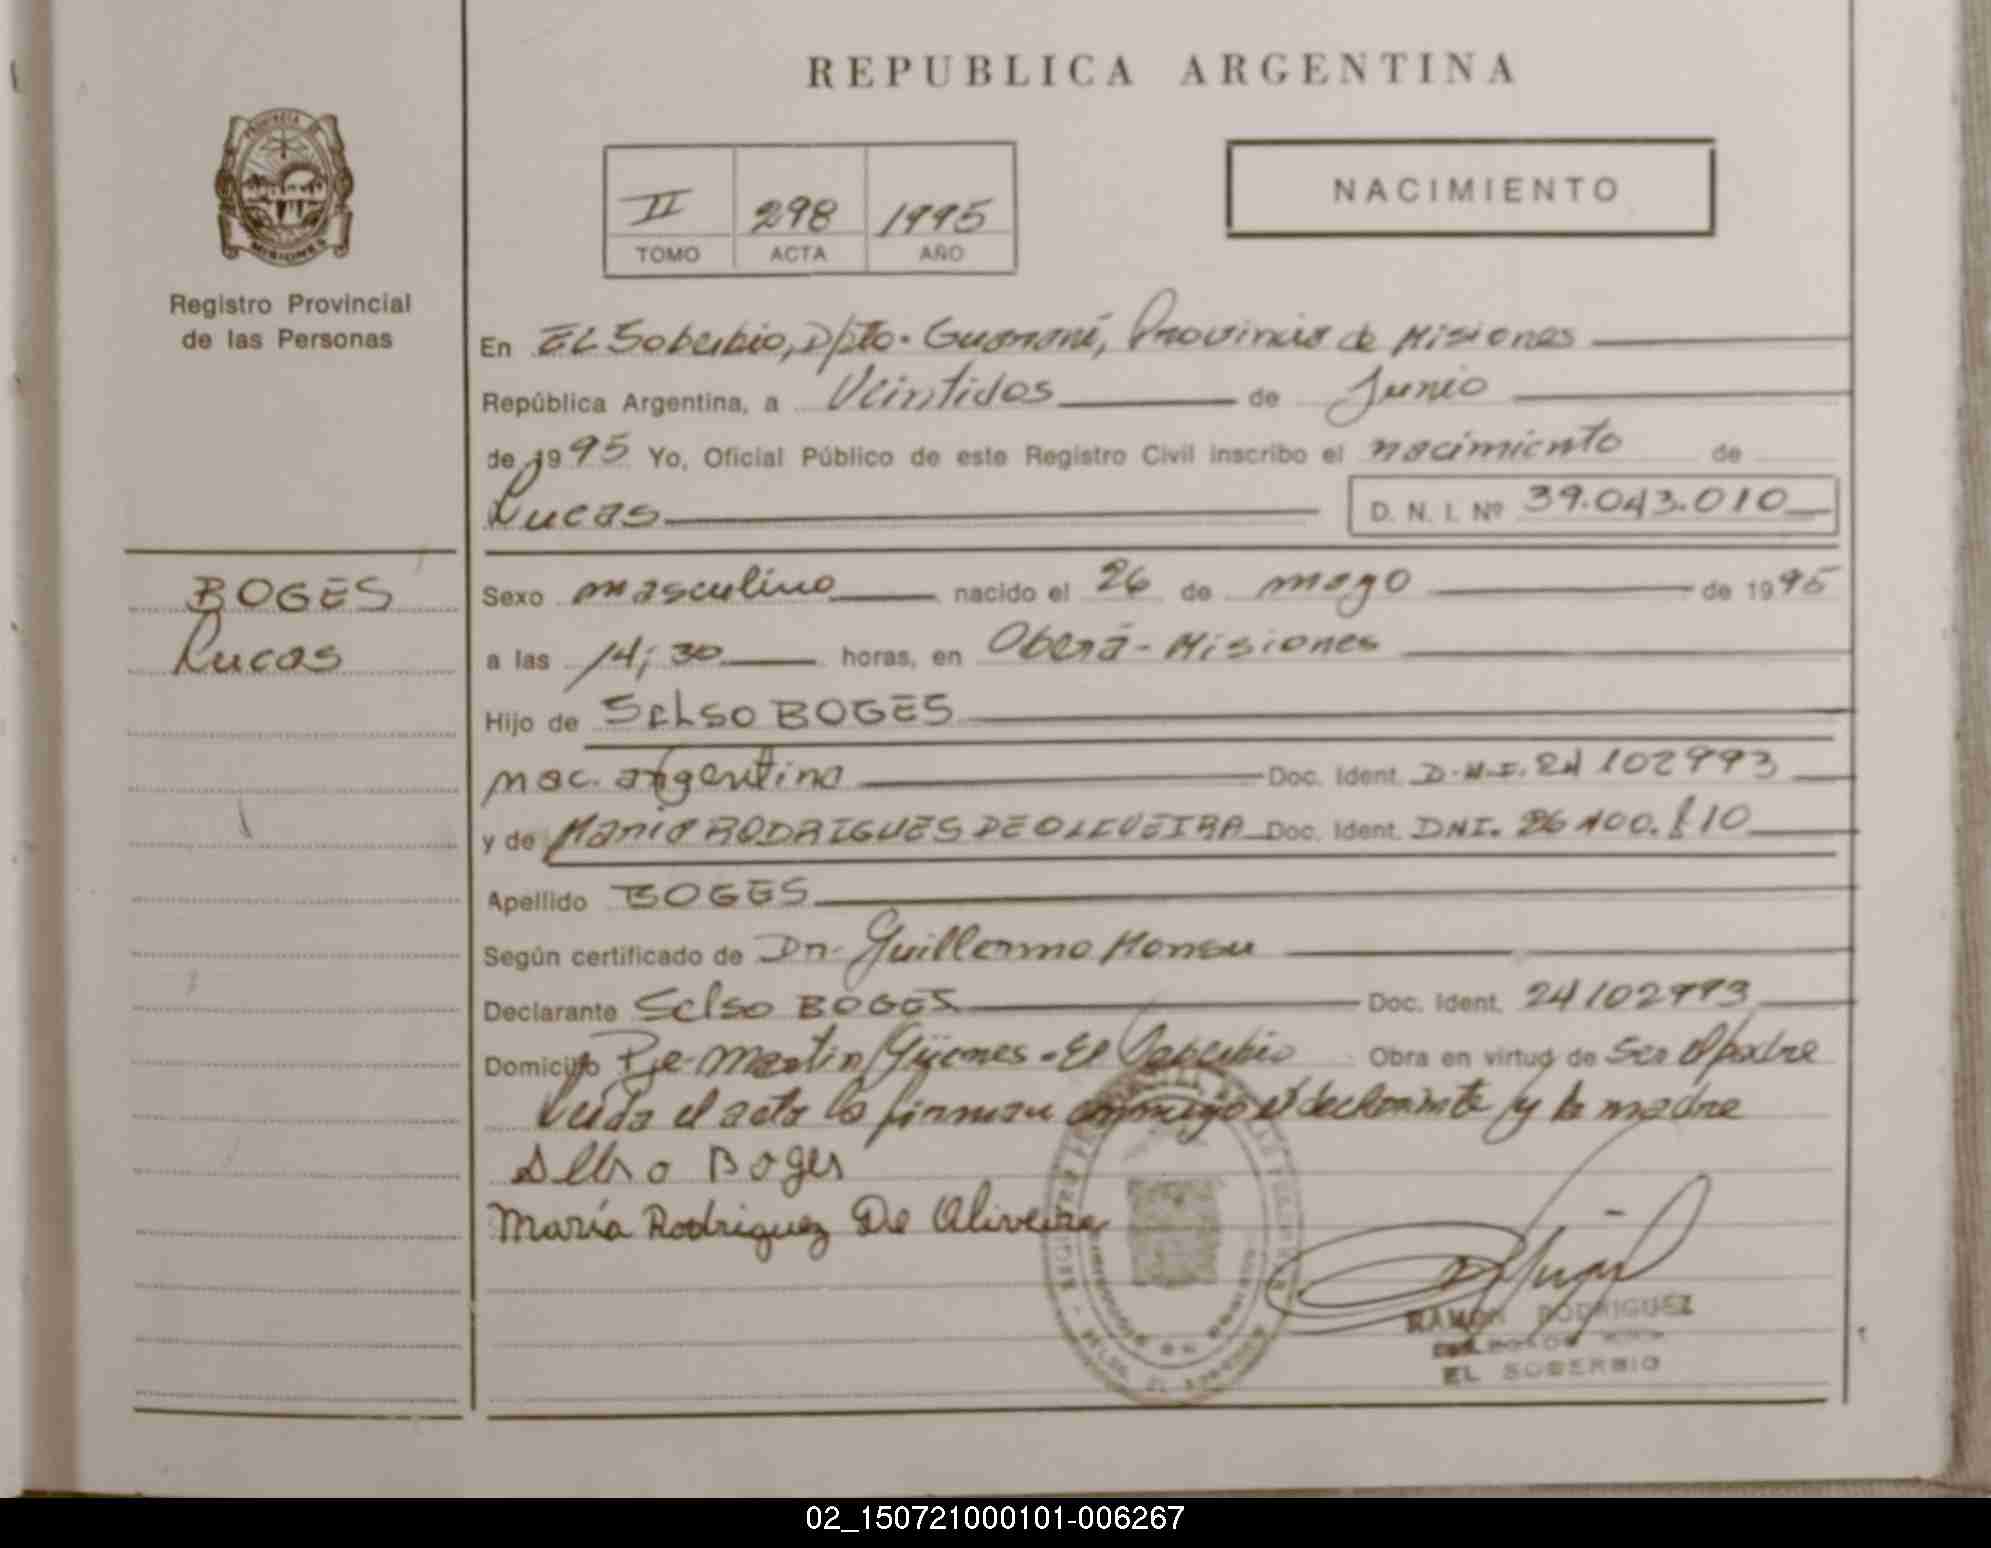 REPUBLICA ARGENTINA
PROVINCIA DE
MISIONES
Registro Provincial
de las Personas
II 298 1995
TOMO ACTA AÑO
NACIMIENTO
En El Soberbio, Dpto. Guaraní, Provincia de Misiones
República Argentina, a Veintidos de Junio
de 1995 Yo, Oficial Público de este Registro Civil inscribo el nacimiento de
Lucas D. N. I. Nº 39.043.010
BOGES
Lucas
Sexo masculino nacido el 26 de mayo de 1995
a las 14;30 horas, en Oberá - Misiones
Hijo de SELSO BOGES
nac. argentina Doc. Ident. D.N.I. 24102993
y de Maria RODRIGUES DE OLIVEIRA Doc. Ident. DNI. 26.100.110
Apellido BOGES
Según certificado de Dr. Guillermo
Declarante Selso BOGES Doc. Ident. 24102993
Domicilio Pje. Martin Güemes - El Soberbio Obra en virtud de Ser el padre
Leida el acta la firman conmigo el declarante y la madre
Selso Boges
María Rodriguez De Oliveira
RAMON RODRIGUEZ
EL SOBERBIO
02_150721000101-006267